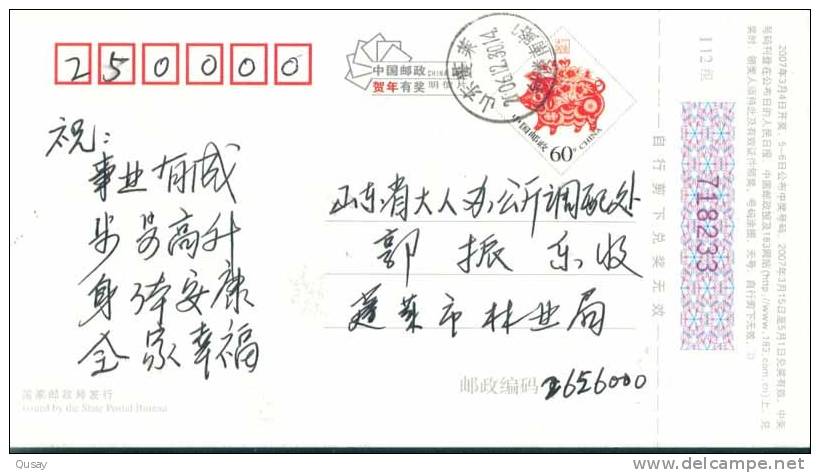 250000
中国邮政 CHINA
贺年有奖 明信片
山东蓬莱
2006.12.30.14
中国邮政 60分 CHINA
祝：
事业有成
步步高升
身体安康
全家幸福
山东省人大办公厅调配处
郭振东收
蓬莱市林业局
邮政编码 265600
国家邮政局发行
Issued by the State Postal Bureau
自行剪下兑奖无效
112组
718233
2007年3月4日开奖，5-6日公布中奖号码，2007年3月15日至5月1日兑奖有效，中奖
号码刊登在公布日的人民日报、中国邮政报及183网站(http://www.183.com.cn)上。兑
奖时，领奖人须持此及有效证件领奖，号码涂圈、无号、自行剪下无效。
Qusay
www.delcampe.net